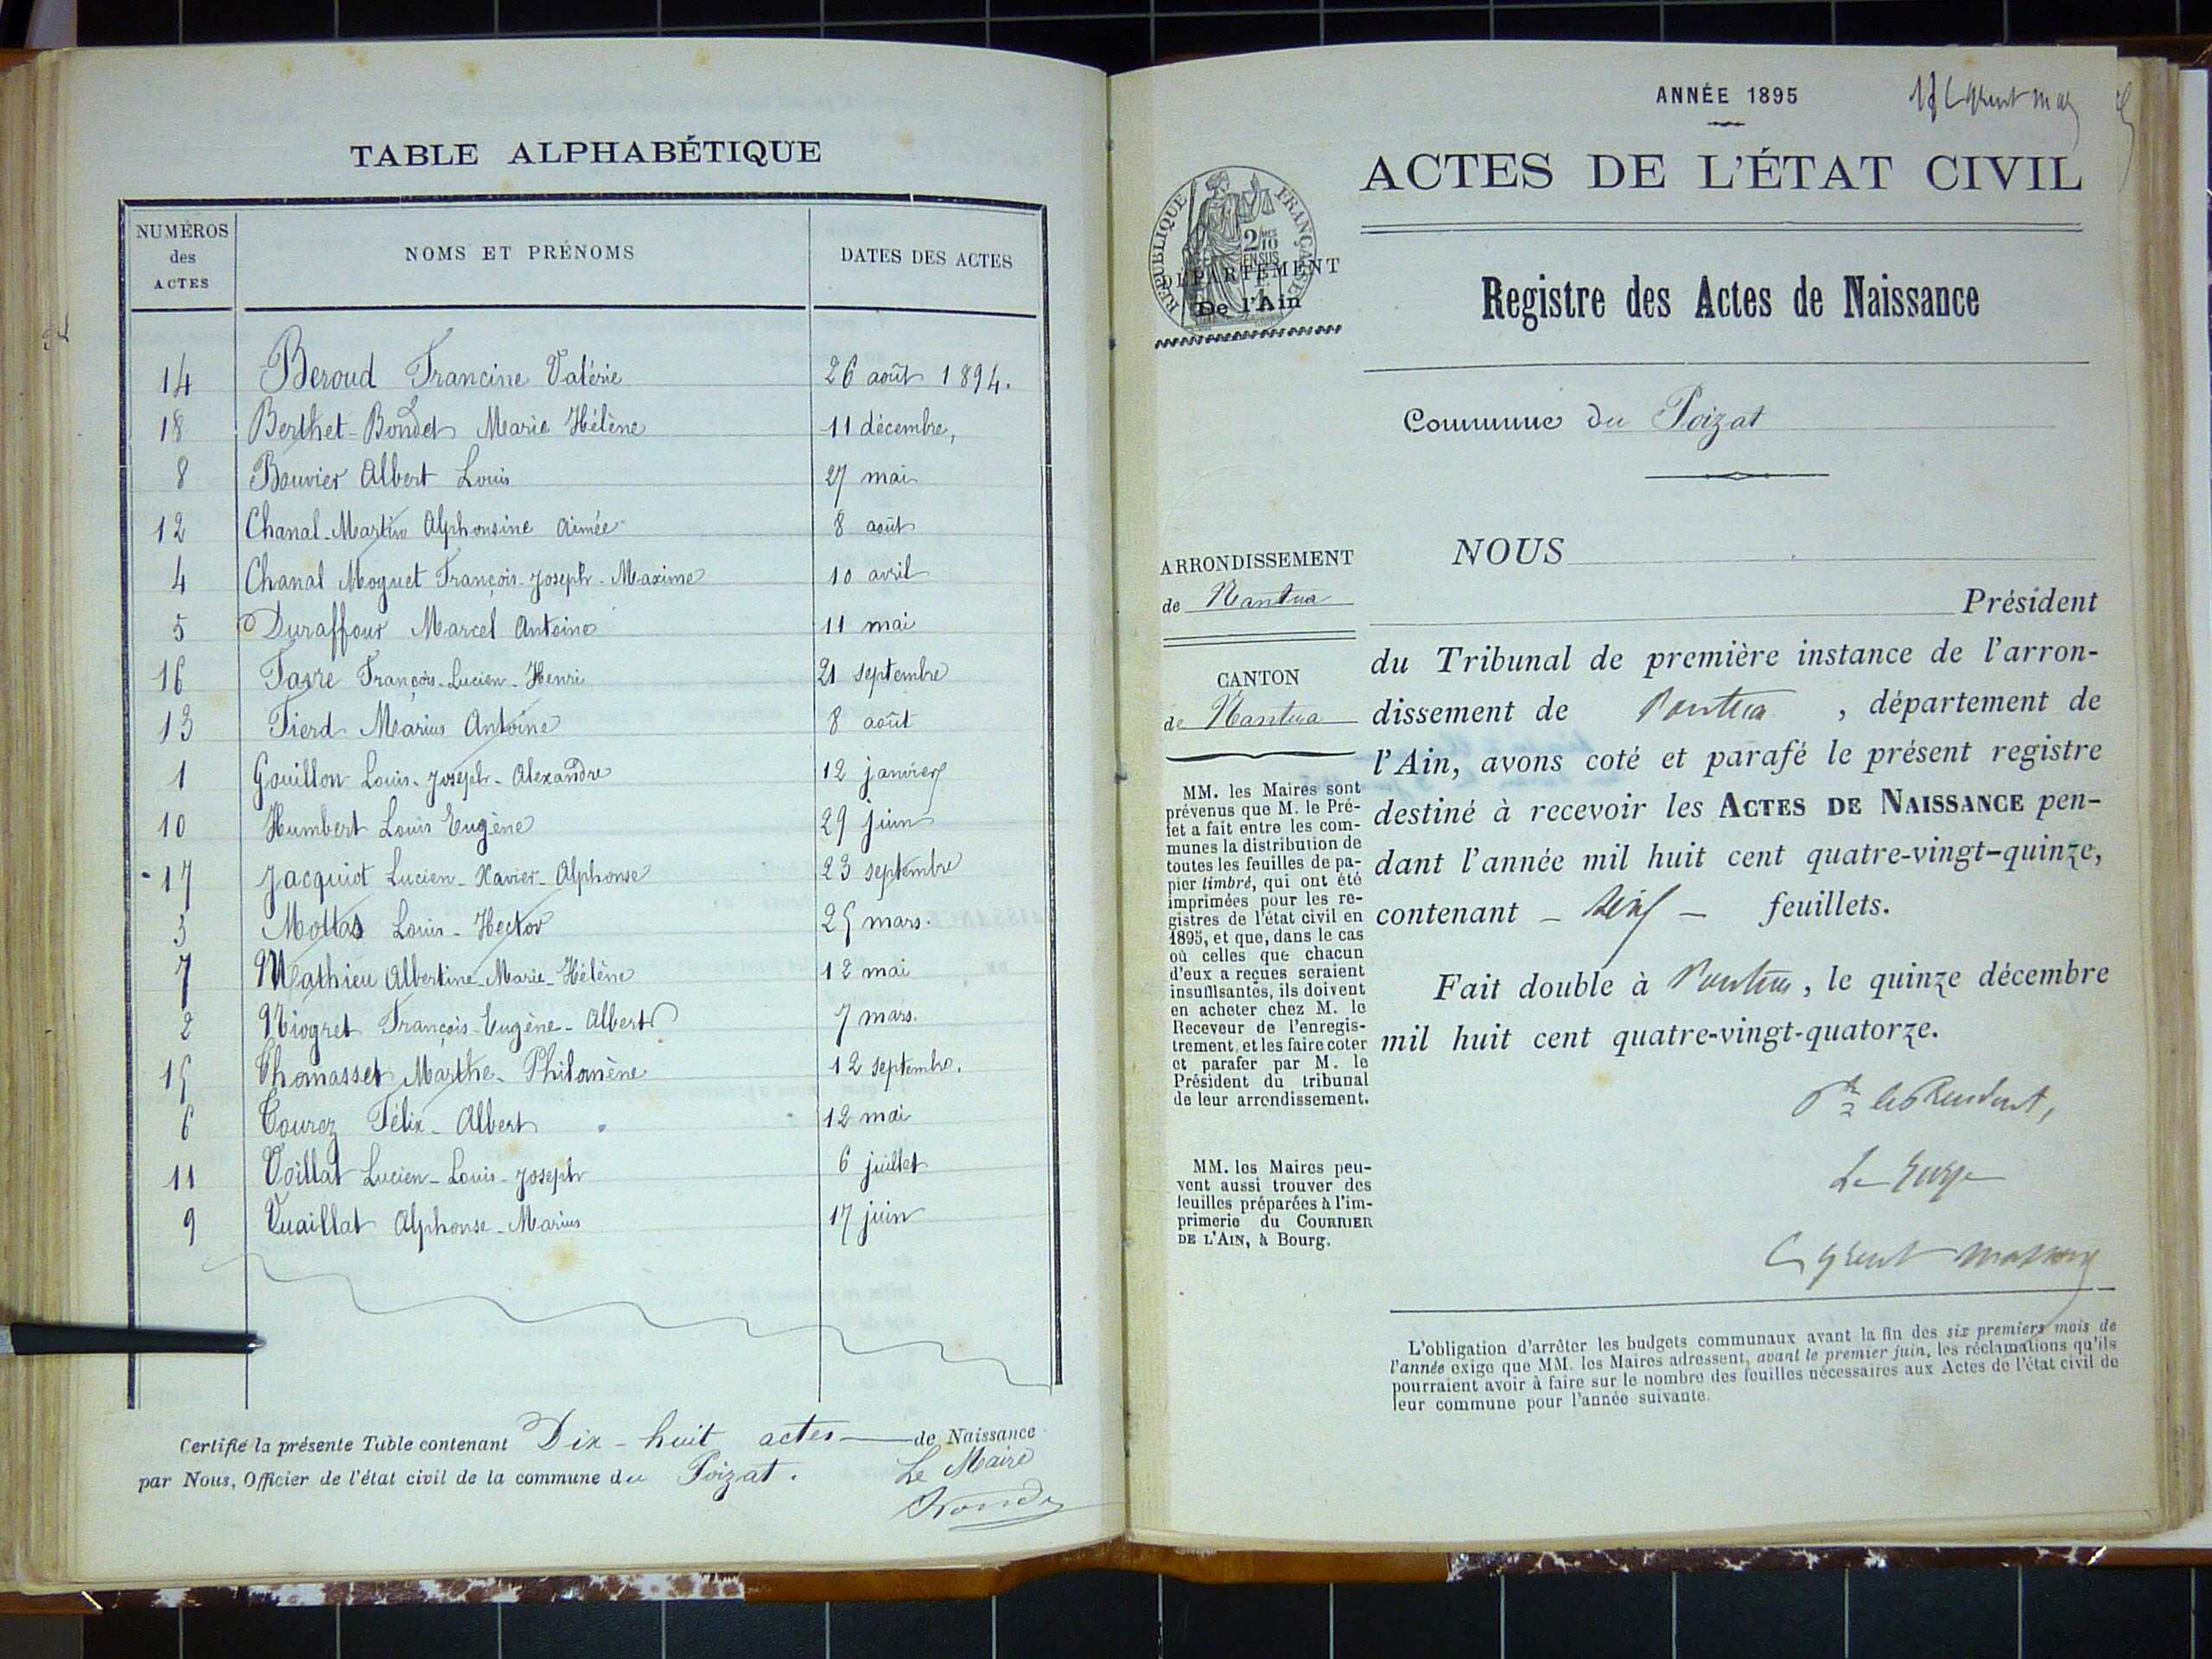 TABLE ALPHABÉTIQUE
NUMÉROS des ACTES
NOMS ET PRÉNOMS
DATES DES ACTES
14 Beroud Francine Valérie 26 août 1894.
18 Berthet-Bondet Marie Hélène 11 décembre,
8 Bouvier Albert Louis 27 mai
12 Chanal-Martin Alphonsine Aimée 8 août
4 Chanal Moguet François-Joseph-Maxime 10 avril
5 Duraffour Marcel Antoine 11 mai
16 Favre François-Lucien-Henri 21 septembre
13 Fierd Marius Antoine 8 août
1 Gouillon Louis-Joseph-Alexandre 12 janvier
10 Humbert Louis Eugène 29 juin
17 Jacquiot Lucien-Xavier-Alphonse 23 septembre
3 Mottas Louis-Hector 25 mars.
7 Mathieu Albertine-Marie-Hélène 12 mai
2 Niogret François-Eugène-Albert 7 mars.
15 Thomasset Marthe-Philomène 12 septembre.
6 Tourez Félix-Albert 12 mai
11 Voillat Lucien-Louis-Joseph 6 juillet
9 Vuaillat Alphonse-Marius 17 juin
Certifié la présente Table contenant Dix-huit actes de Naissance
par Nous, Officier de l'état civil de la commune du Poizat.
Le Maire
ANNÉE 1895
ACTES DE L'ÉTAT CIVIL
RÉPUBLIQUE FRANÇAISE
DÉPARTEMENT
De l'Ain
Registre des Actes de Naissance
Commune du Poizat
ARRONDISSEMENT
de Nantua
CANTON
de Nantua
MM. les Maires sont
prévenus que M. le Pré-
fet a fait entre les com-
munes la distribution de
toutes les feuilles de pa-
pier timbré, qui ont été
imprimées pour les re-
gistres de l'état civil en
1895, et que, dans le cas
où celles que chacun
d'eux a reçues seraient
insuffisantes, ils doivent
en acheter chez M. le
Receveur de l'enregis-
trement, et les faire coter
et parafer par M. le
Président du tribunal
de leur arrondissement.
MM. les Maires peu-
vent aussi trouver des
feuilles préparées à l'im-
primerie du COURRIER
DE L'AIN, à Bourg.
NOUS
Président
du Tribunal de première instance de l'arron-
dissement de Nantua, département de
l'Ain, avons coté et parafé le présent registre
destiné à recevoir les ACTES DE NAISSANCE pen-
dant l'année mil huit cent quatre-vingt-quinze,
contenant feuillets.
Fait double à Nantua, le quinze décembre
mil huit cent quatre-vingt-quatorze.
Pr le Président,
Le Juge
L'obligation d'arrêter les budgets communaux avant la fin des six premiers mois de
l'année exige que MM. les Maires adressent, avant le premier juin, les réclamations qu'ils
pourraient avoir à faire sur le nombre des feuilles nécessaires aux Actes de l'état civil de
leur commune pour l'année suivante.